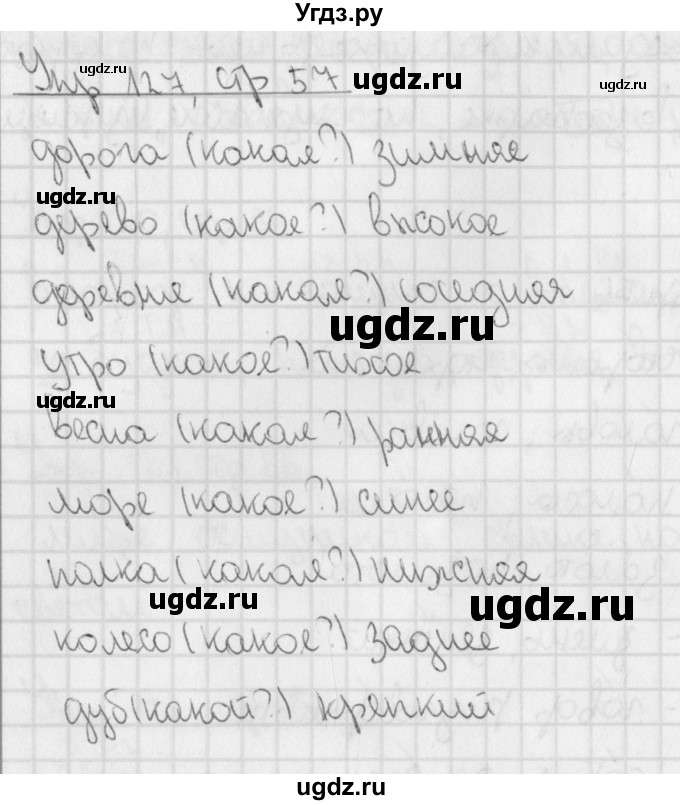 Угдз.ру
Упр 127, стр 57
ugdz.ru
ugdz.ru
ugdz.ru
дорога (какая?) зимняя
ugdz.ru
дерево (какое?) высокое
деревня (какая?) соседняя
ugdz.ru
утро (какое?) тихое
ugdz.ru
весна (какая?) ранняя
море (какое?) синее
полка (какая?) нижняя
ugdz.ru
ugdz.ru
колесо (какое?) заднее
дуб (какой?) крепкий
ugdz.ru